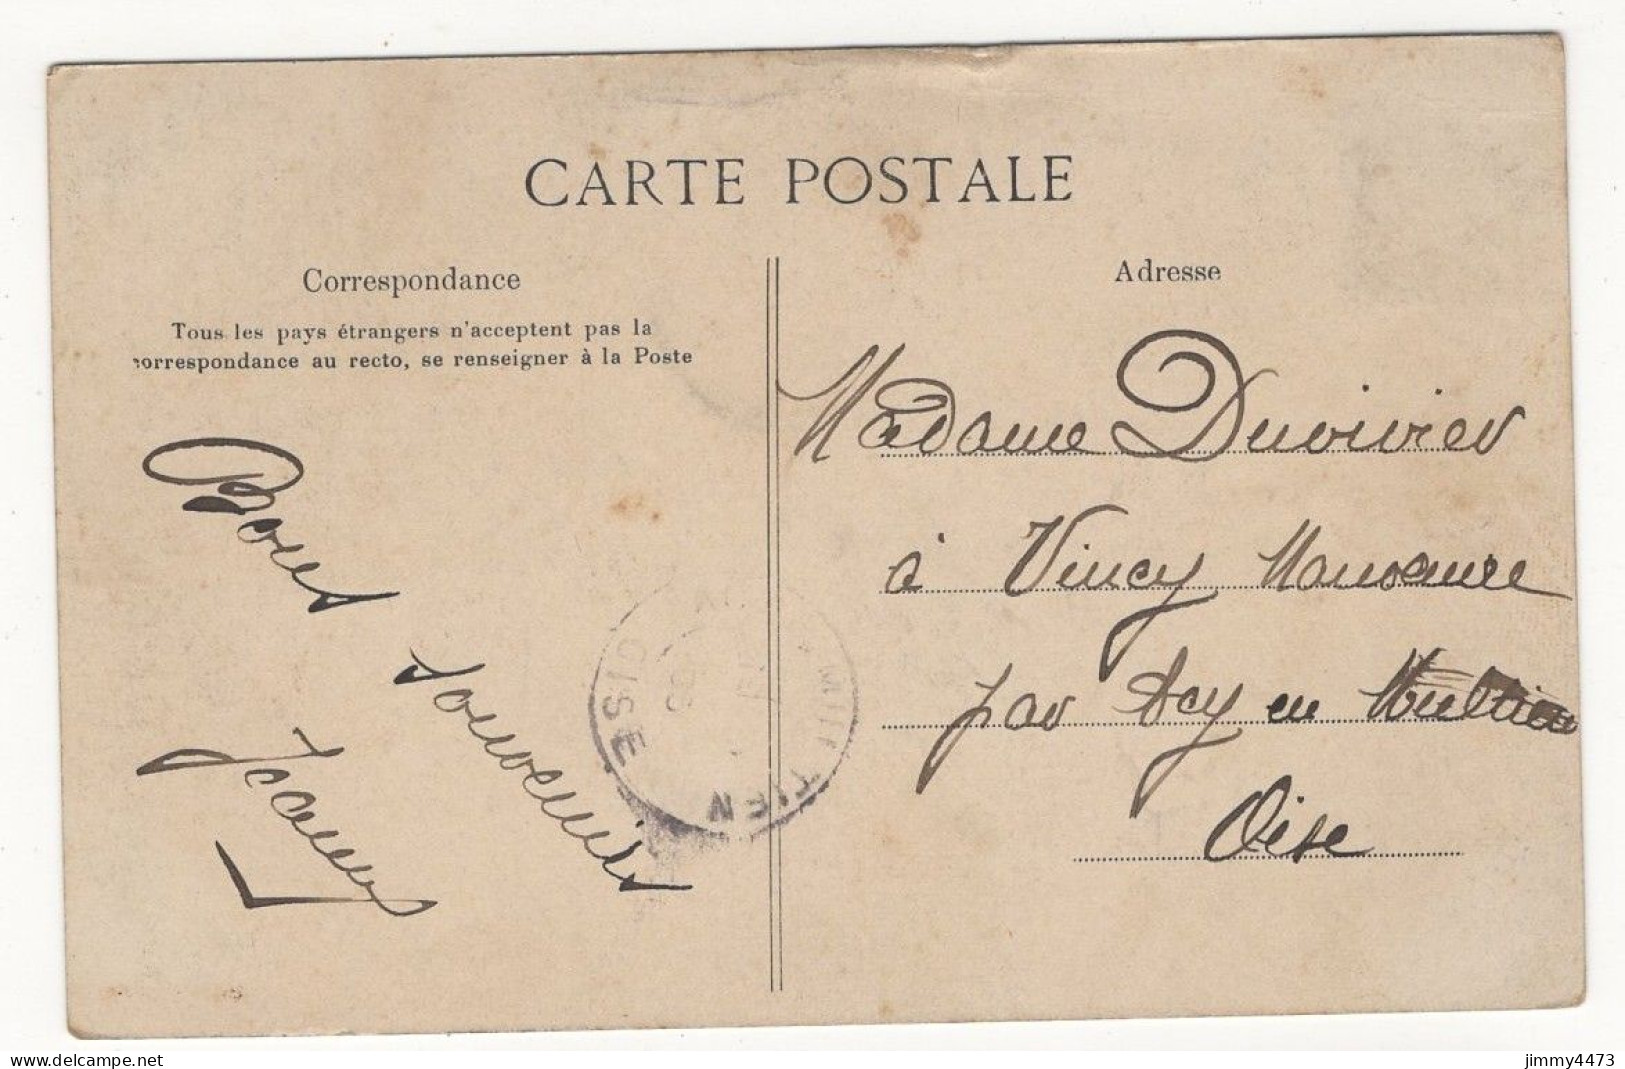 CARTE POSTALE
Correspondance
Tous les pays étrangers n'acceptent pas la
correspondance au recto, se renseigner à la Poste
Bons
souvenirs
Adresse
Madame Duvivier
à Vincy Manoeuvre
par Acy en Multien
Oise
OISE
TIEN
delcampe.net
jimmy4473